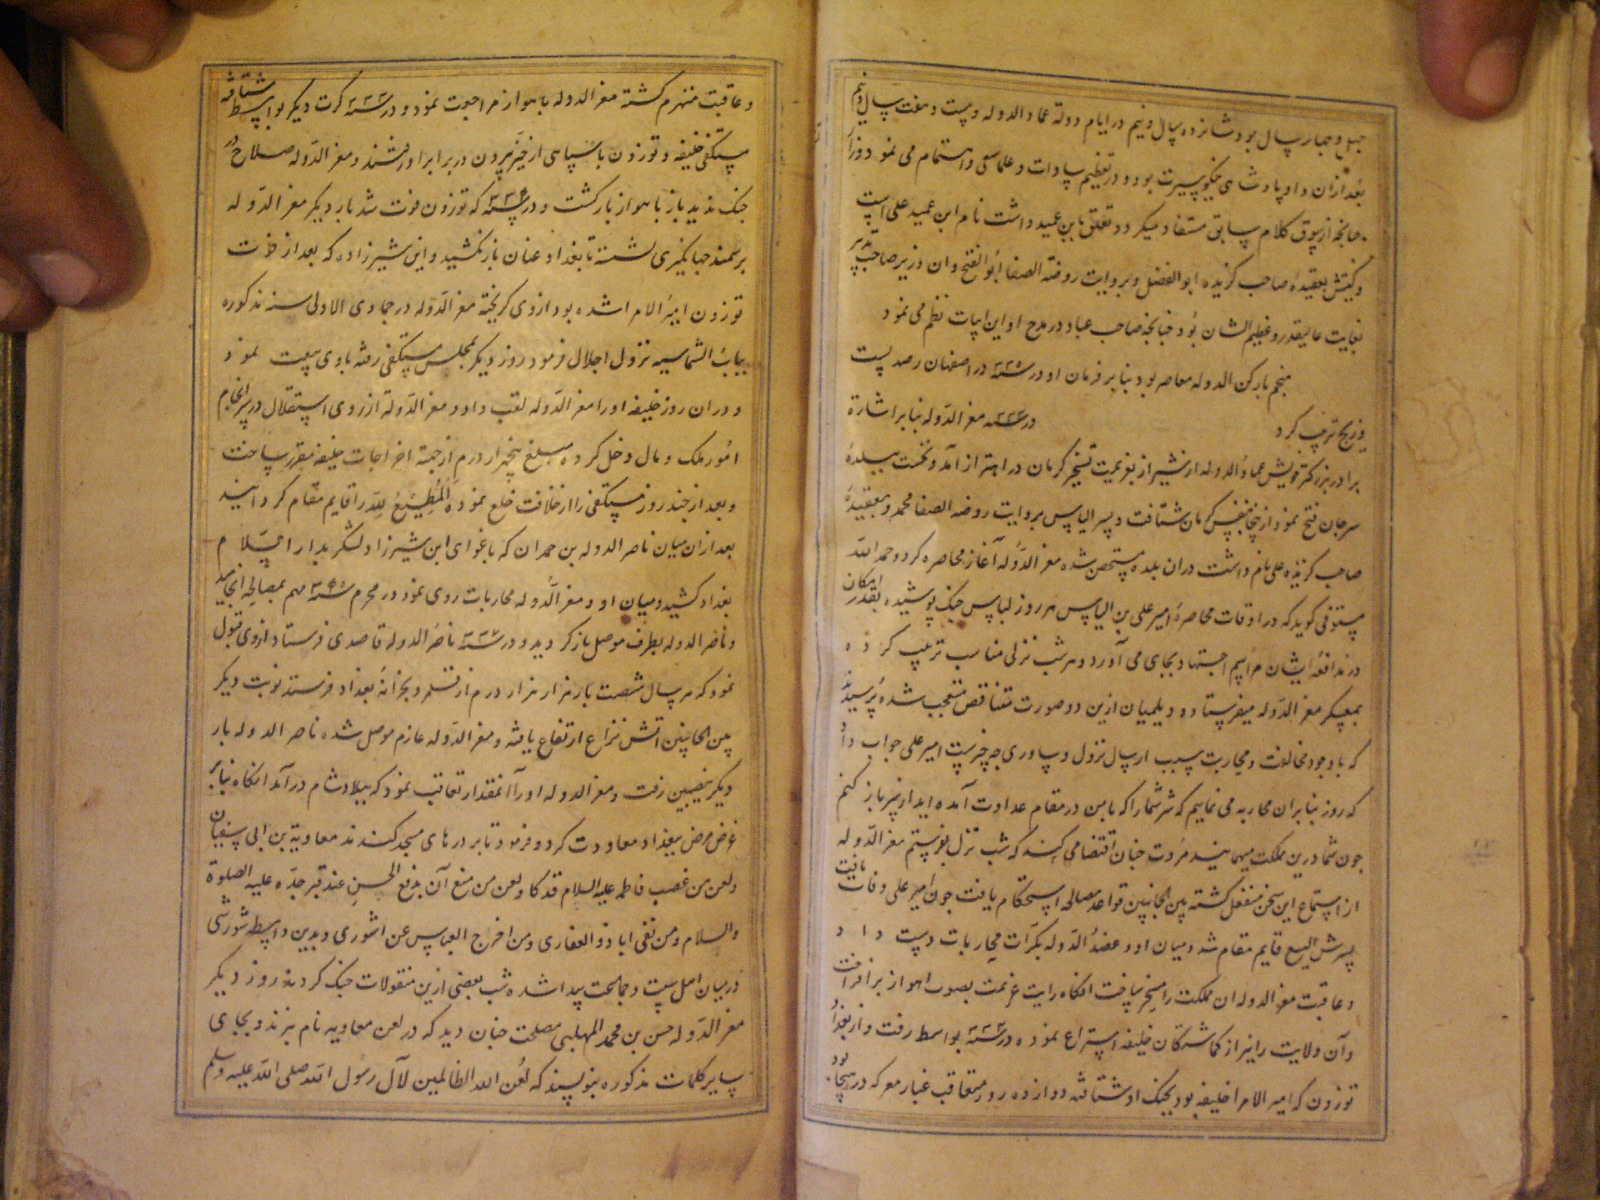 چهل و چهار سال بود شانزده سال و نیم در ایام دولة عماد الدوله و بیست و هفت سال و نیم
بعد ازان و او پادشاهی نیکو سیرت بود و در تعظیم سادات و علما سعی و اهتمام می نمود و وزرا
چنانچه از سوق کلام سابق مستفاد میکردد تعلق بابن عمید داشت نام ابن عمید علی است
و کنیتش بعقیدهٔ صاحب کزیده ابو الفضل و بروایت روضة الصفا ابو الفتح و ان وزیر صاحب تدبیر
بغایت عالیقدر و عظیم الشان بود چنانچه صاحب عباد در مدح او این ابیات نظم می نمود
منجم بارکن الدوله معاصر بود بنا بر فرمان او در سنه ۳۳۵ در اصفهان رصد بست
و زیج ترتیب کرد در سنه ۳۲۴ معز الدوله بنا بر اشارة
برادر بزرکتر خویش عماد الدوله از شیراز بعزیمت تسخیر کرمان در اهتزاز آمد و نخست بلدهٔ
سرجان فتح نمود از نجا بنفس کرمان شتافت و پسر الیاس بروایت روضه الصفا محمد و بعقیدهٔ
صاحب کزیده علی نام داشت دران بلده متحصن شده معز الدوله آغاز محاصره کرد و حمد الله
مستوفی کوید که در اوقات محاصره امیر علی بن الیاس هر روز لباس جنک پوشیده بقدر امکان
در مدافعهٔ ایشان مراسم اجتهاد بجای می آورد و هر شب نزلی مناسب ترتیب کرده
بمعسکر معز الدوله میفرستاد و دیلمیان ازین دو صورت متناقض متعجب شده پرسیدند
که با وجود مخالفت و محاربت سبب ارسال نزول و یاوری چه چیزست امیر علی جواب داد
که روز بنا بران محاربه می نماییم که شر شما را که با من در مقام عداوت آمده اید از سر باز کنم
چون شما درین مملکت میهمانید مروت چنان اقتضا می کند که شب نزل بفرستم معز الدوله
از استماع این سخن منفعل کشته بین الجانبین قواعد مصالحه استحکام یافت چون امیر علی وفات یافت
پسرش الیسع قایم مقام شد و میان او و عضد الدوله بکرات محاربات دست داد
و عاقبت معز الدوله ان مملکت را مسخر ساخت انکاه رایت عزیمت بصوب اهواز برافراخت
و آن ولایت را نیز از کماشتکان خلیفه انتزاع نموده در سنه ۳۳۲ بواسط رفت و از بغداد
توزون که امیر الامرا خلیفه بود بجنک او شتافته دوازده روز متعاقب غبار معرکه در هیجا بود
و عاقبت منهزم کشته معز الدوله باهواز مراجعت نمود و در سنه ۳۳۳ کرت دیکر بواسط شتافته
مستکفی خلیفه و توزون با سپاهی از حیز بیرون در برابر او رفتند و معز الدوله صلاح در
جنک ندید باز باهواز بازکشت و در سنه ۳۳۴ که توزون فوت شد بار دیکر معز الدوله
بر سمند جهانکیری نشسته تا بغداد عنان باز نکشید و ابن شیرزاد که بعد از فوت
توزون امیر الامرا شده بود ازوی کریخته معز الدوله در جمادی الاولی سنه مذکوره
بباب الشماسیه نزول اجلال فرمود روز دیکر بمجلس مستکفی رفته باوی بیعت نمود
و دران روز خلیفه او را معز الدوله لقب داد و معز الدولة از روی استقلال در سرانجام
امور ملک و مال دخل کرده مبلغ پنجهزار درم از جهة اخراجات خلیفه مقرر ساخت
و بعد از چند روز مستکفی را از خلافت خلع نموده المطیع لله را قایم مقام کردانید
بعد ازان میان ناصر الدوله بن حمدان که باغوای ابن شیرزاد لشکر بدار السلام
بغداد کشید و میان او و معز الدوله محاربات روی نمود و در محرم سنه ۳۳۵ مهم بمصالحه انجامید
و ناصر الدوله بطرف موصل بازکردید و در سنه ۳۳۷ ناصر الدوله قاصدی فرستاد ازوی قبول
نمود که هر سال شصت بار هزار هزار درم از قلمرو بخزانهٔ بغداد فرستد نوبت دیکر
بین الجانبین آتش نزاع ارتفاع یافته و معز الدوله عازم موصل شده ناصر الدوله بار
دیکر بنصیبین رفت و معز الدوله او را آنمقدار تعاقب نمود که ببلاد شام درآمد انکاه بنا بر
عرض مرض ببغداد معاودت کرد و فرمود تا بر درهای مسجد کنند ند معاویة بن ابی سفیان
و لعن من غصب فاطمه علیه السلام فدکا و لعن من منع آن یدفع الحسن عند قبر جده علیه الصلوة
والسلام و من نفی ابا ذر الغفاری و من اخرج العباس عن الشوری و بدین واسطه شورشی
در میان اهل سنت و جماعت پیدا شده شب بعضی ازین منقولات حک کردند روز دیکر
معز الدوله حسن بن محمد المهلبی مصلحت چنان دید که در لعن معاویه نام برند و بجای
سایر کلمات مذکوره بنویسند که لعن الله الظالمین لآل رسول الله صلی الله علیه وسلم